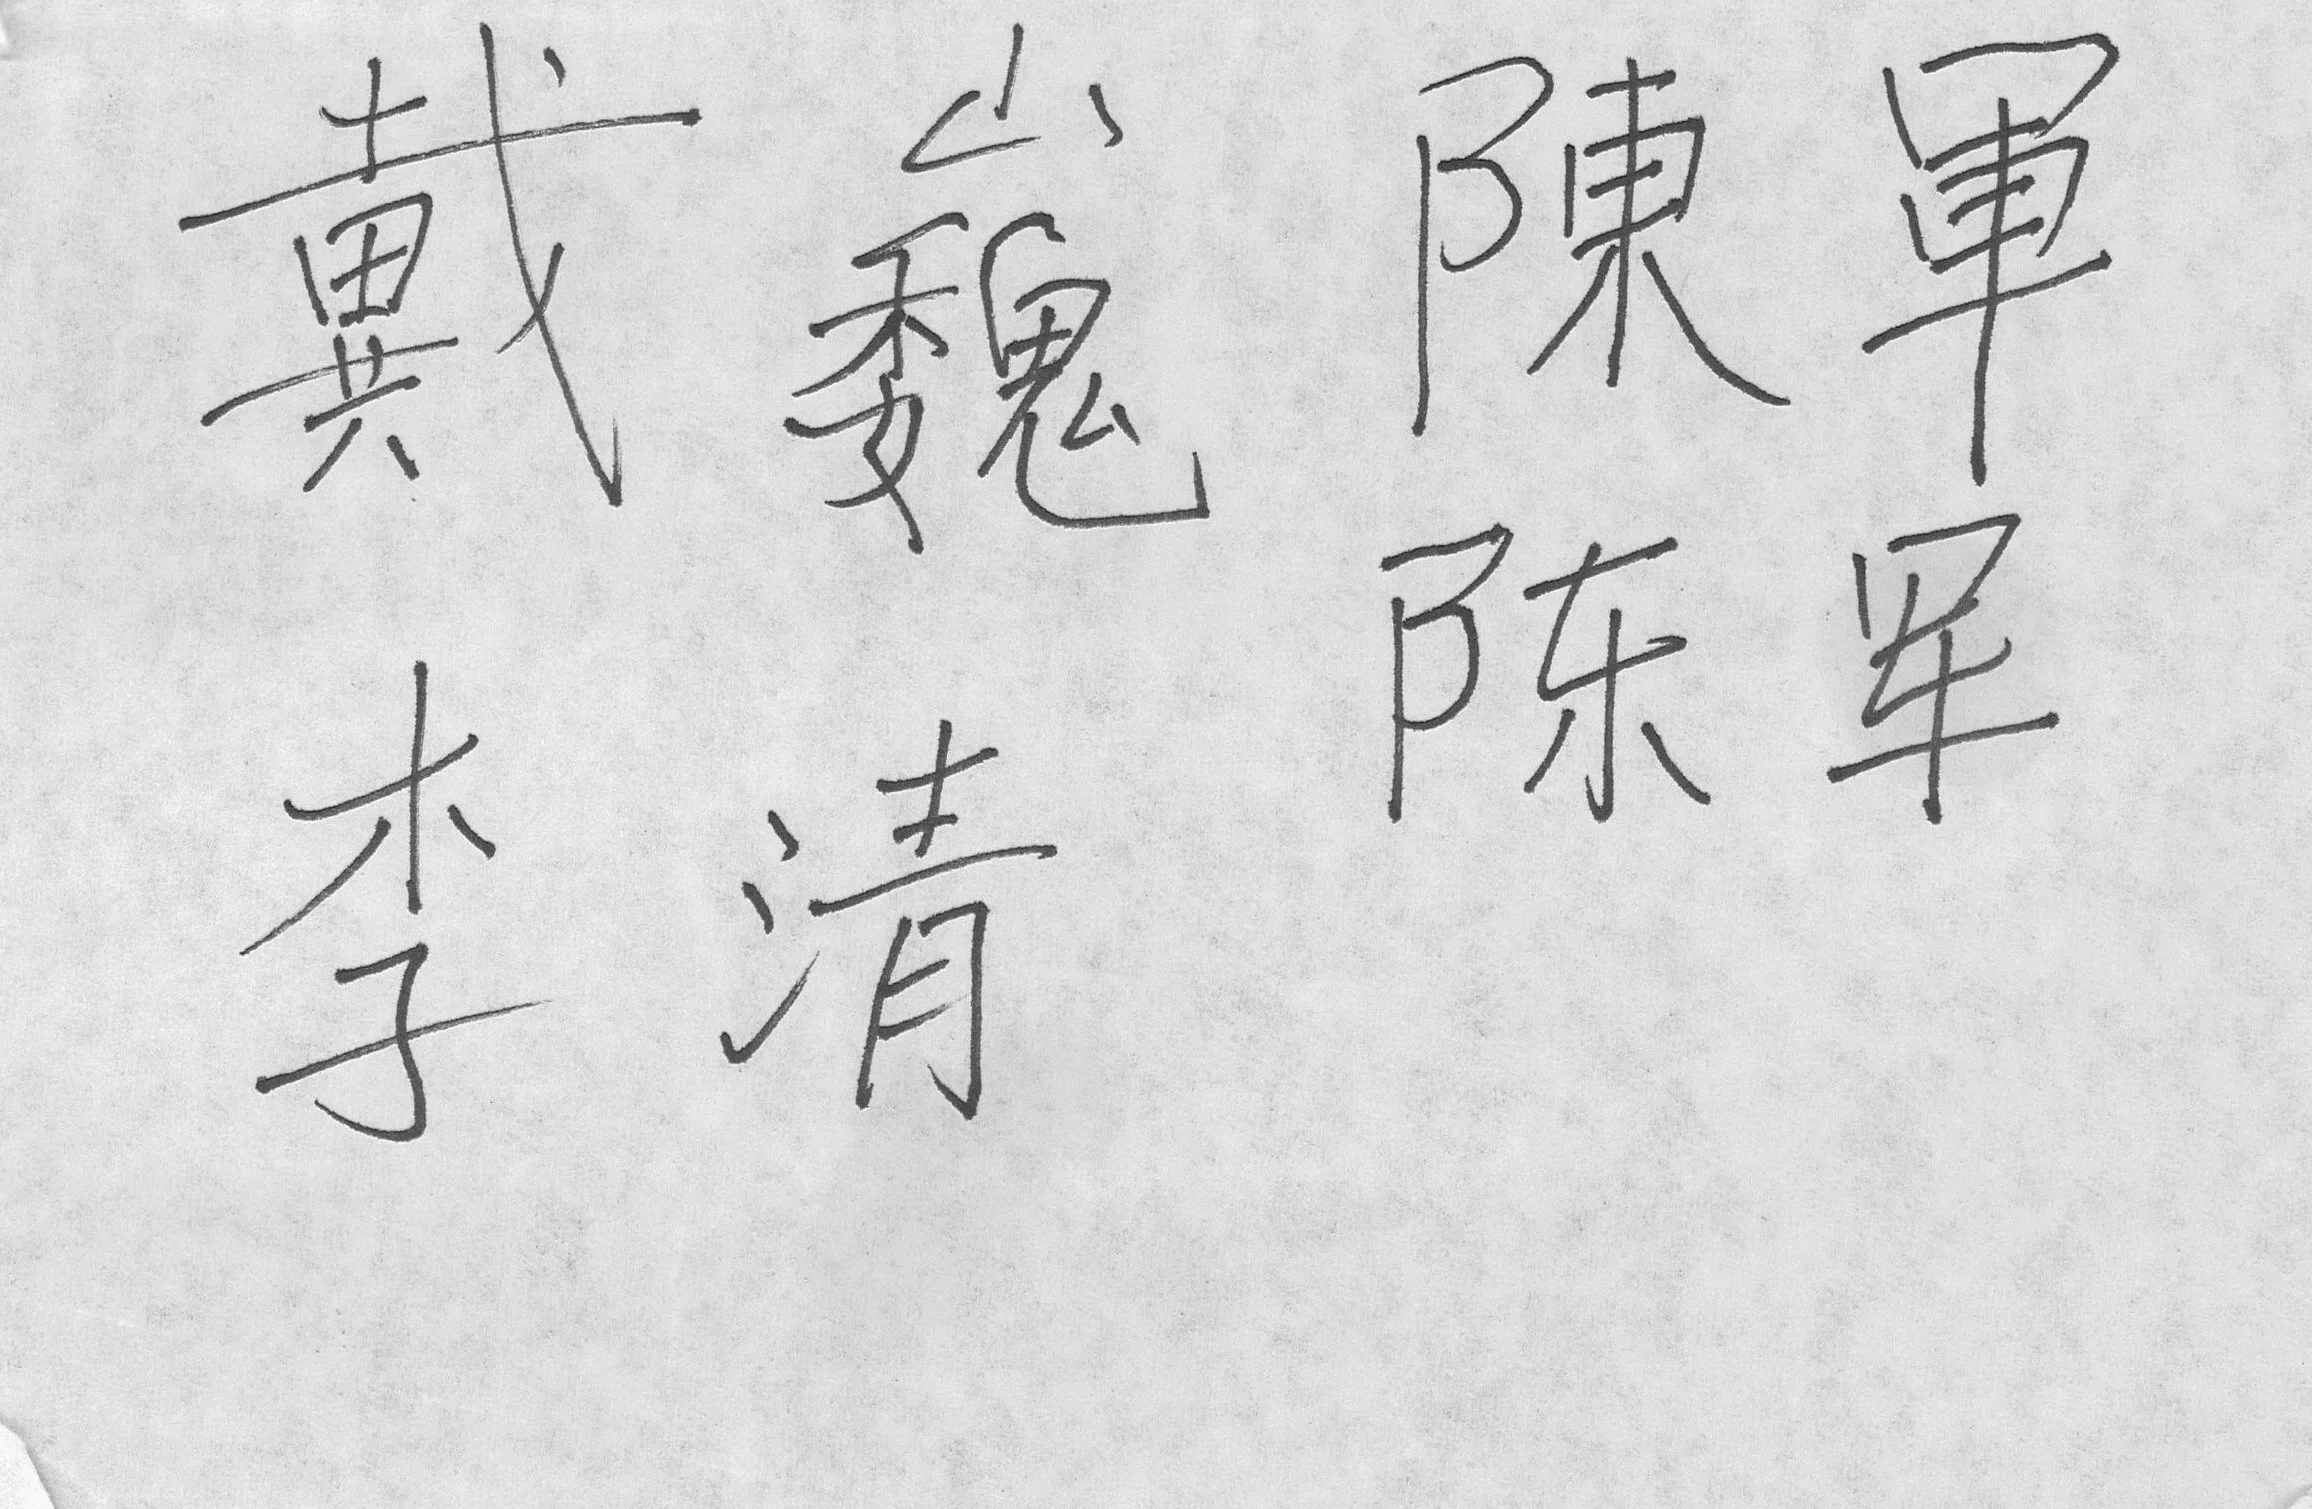 戴巍 陳軍
陈军
李清